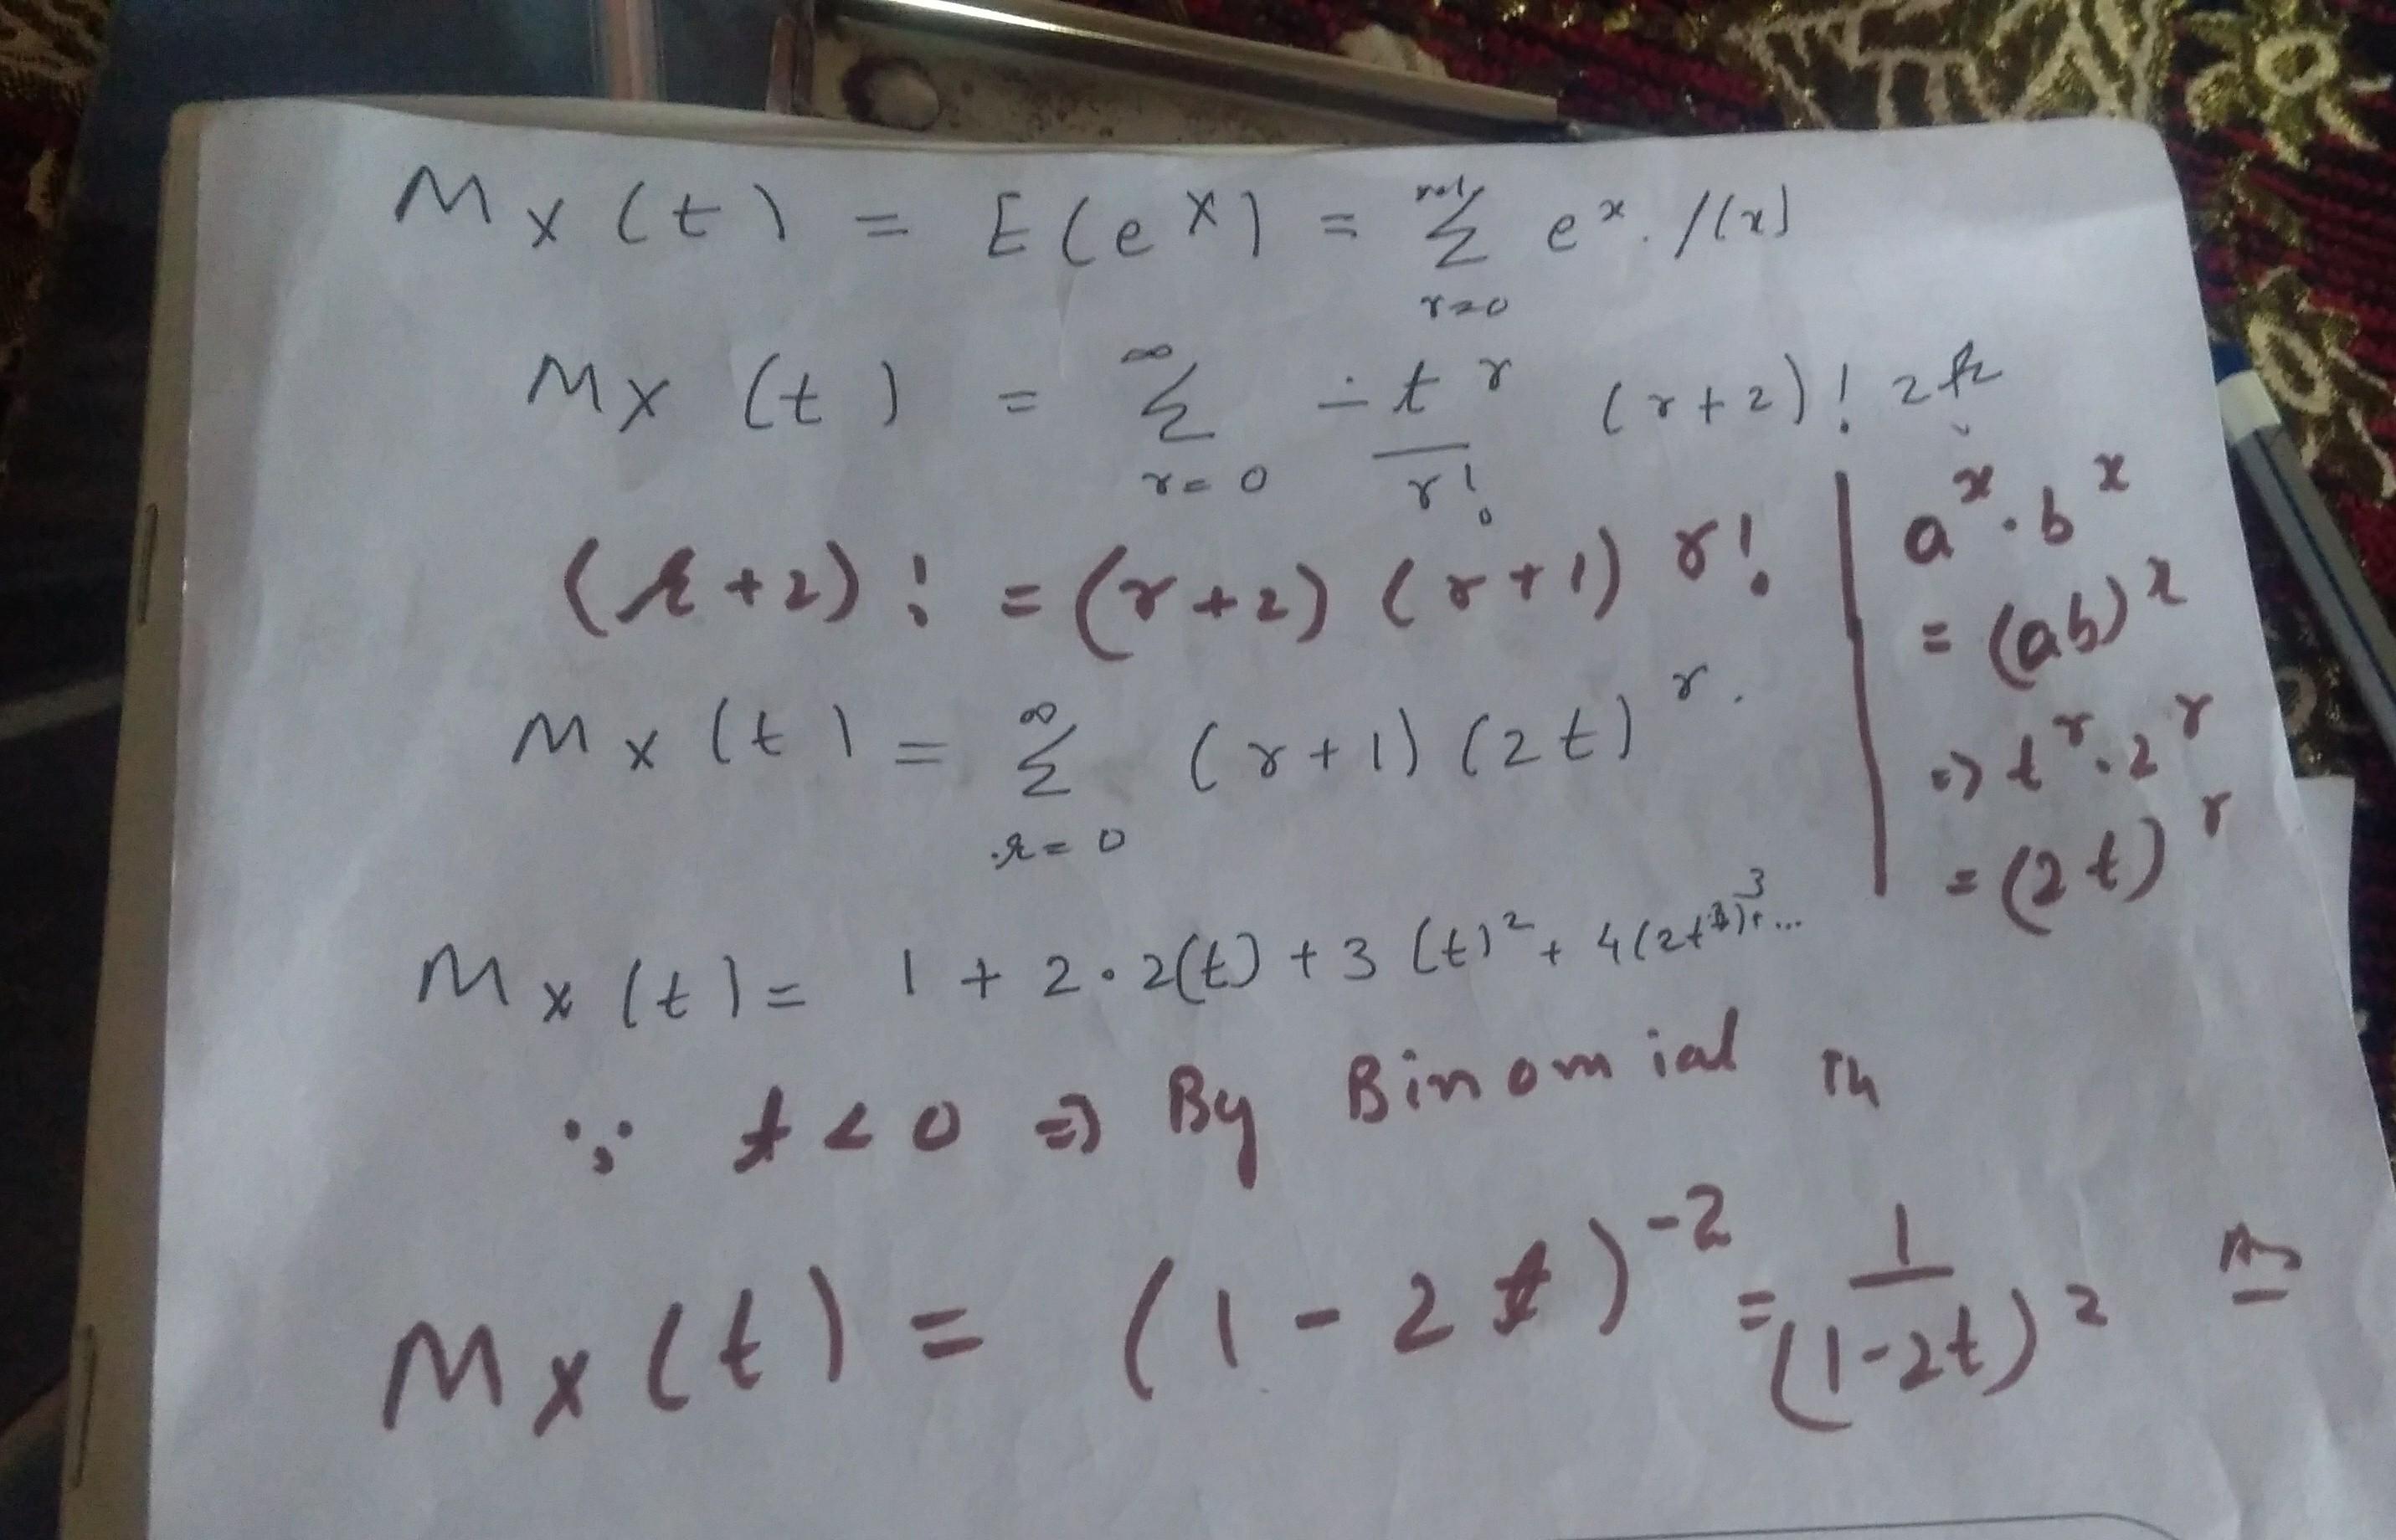 Mx(t) = E(eˣ) = Σ r=0 eˣ. f(x)
Mx (t) = ∞ Σ r=0 tʳ/r! (r+2)! 2
(r+2)! = (r+2)(r+1) r!
aˣ.bˣ
= (ab)ˣ
Mx(t) = ∞ Σ r=0 (r+1)(2t)ʳ.
⇒ tʳ.2ʳ
= (2t)ʳ
Mx(t) = 1 + 2.2(t) + 3(t)² + 4(2t)³+...
∵ t<0 ⇒ By Binomial Th
Mx(t) = (1-2t)⁻² = 1/(1-2t)² Ans